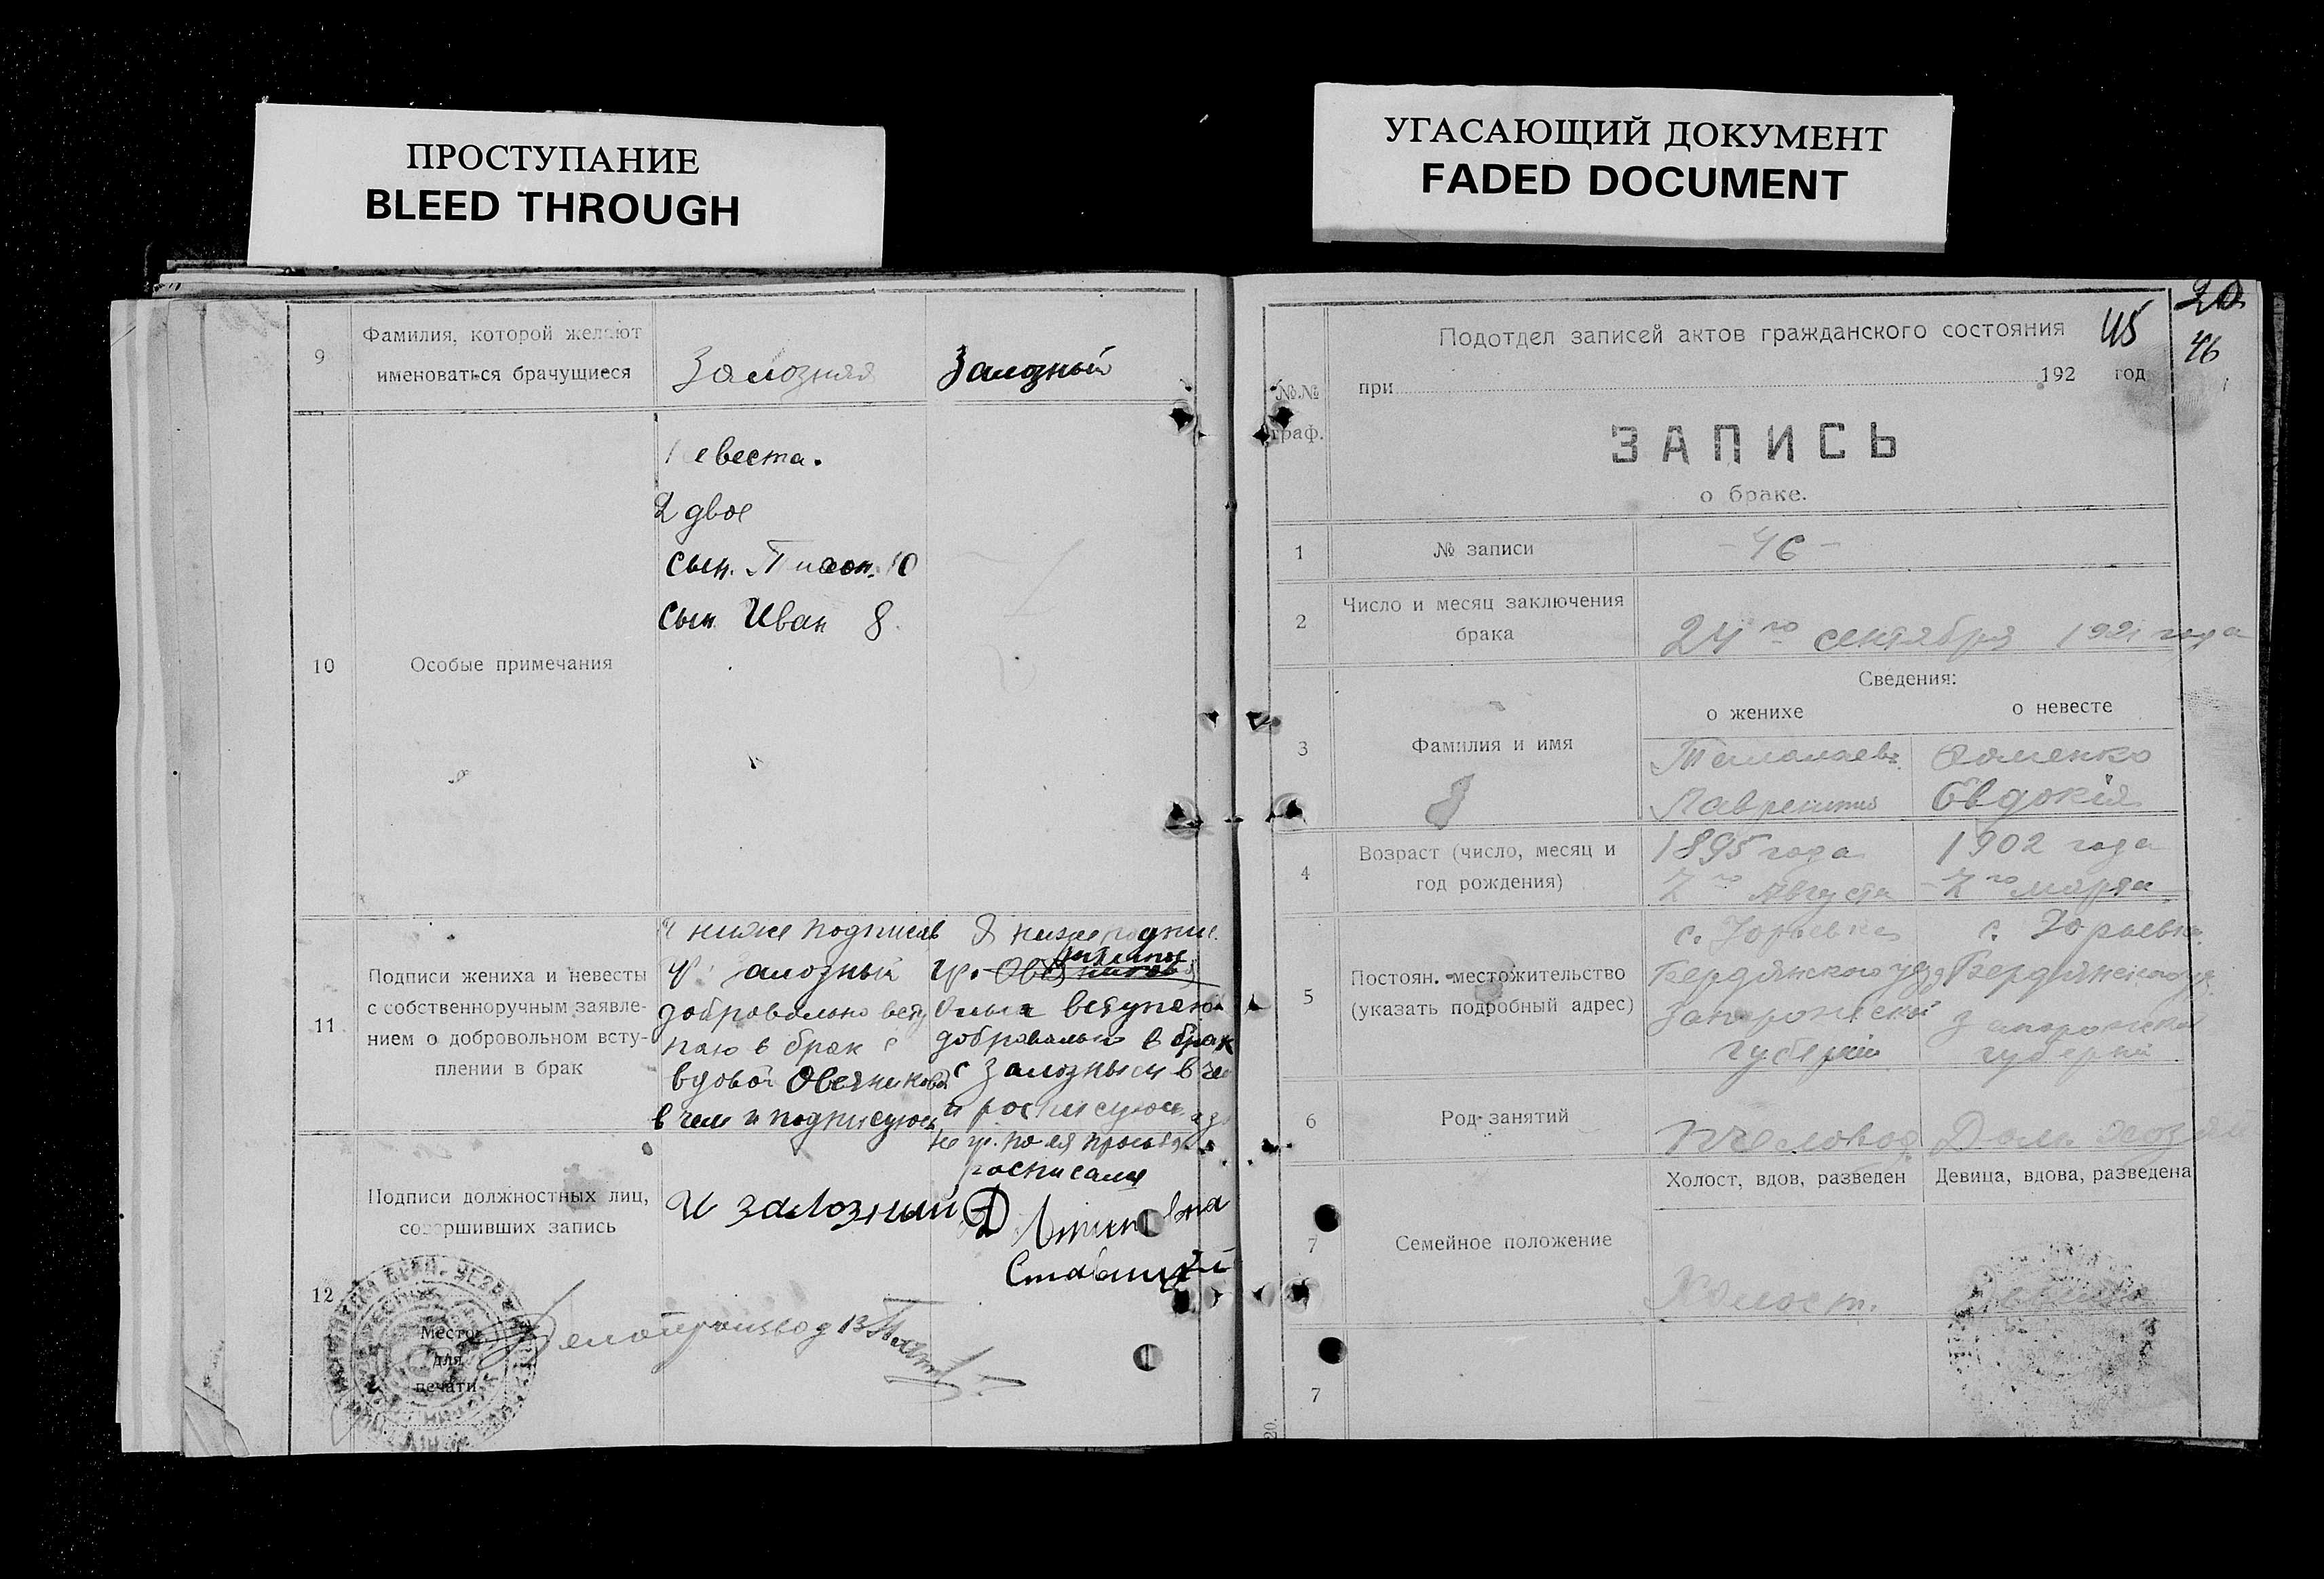 ПРОСТУПАНИЕ
BLEED THROUGH
УГАСАЮЩИЙ ДОКУМЕНТ
FADED DOCUMENT
9
Фамилия, которой желают
именоваться брачущиеся
Залозная
Залозный
10
Особые примечания
евеста.
2 двое
сын. 10
Сын Иван 8.
11
Подписи жениха и невесты
с собственноручным заявле-
нием о добровольном всту-
плении в брак
ниже подписав
алозный
добровольно всту
паю в брак с
вдовой Овсяниковой
в чем и подписуюсь
Я ниже подпис.
гр.
вступаю
добровольно в брак
с Залозным в че
и росписуюсь
по ея прозьбе
росписался
12
Подписи должностных лиц,
совершивших запись
И залозний
Ставицкий
Место
для
печати
Делопроизвод
20
46
45
Подотдел записей актов гражданского состояния
при 192 год
№№
граф.
ЗАПИСЬ
о браке.
1
№ записи
- 46 -
2
Число и месяц заключения
брака
24го сентября 1921 года
3
Фамилия и имя
Сведения:
о женихе
о невесте
Лаврентий
Евдокія
4
Возраст (число, месяц и
год рождения)
1895 года
7го Августа
1902 года
7го марта
5
Постоян. местожительство
(указать подробный адрес)
с. Юрьевка
Бердянского уезд
Запорожской
губерніи
с. Юрьевка
Бердянского у
Запорожской
губерніи
6
Род занятий
Пчеловод
Дом. хозяй
7
Семейное положение
Холост, вдов, разведен
Девица, вдова, разведена
Холост.
Девица
7
20.